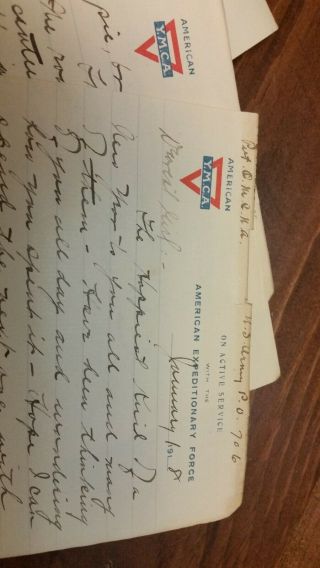 AMERICAN
Y.M.C.A.
pie,
The
U.S. Army P.O. 706
AMERICAN
Y.M.C.A.
ON ACTIVE SERVICE
WITH THE
AMERICAN EXPEDITIONARY FORCE
January 1918
Dearest :-
The Happiest Kind of a
New Year's you all and many
of them - Have been thinking
of you all day and wondering
how you spent it - Hope I can
spend the next one with